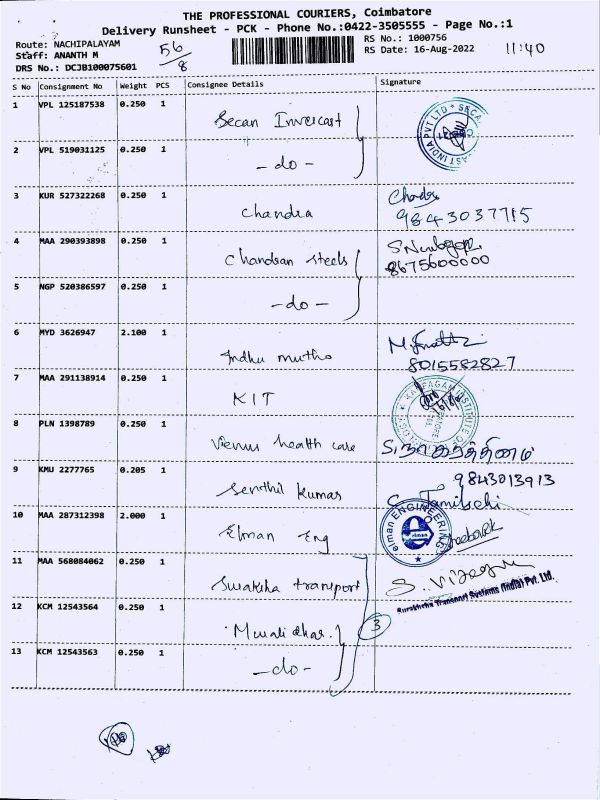 THE PROFESSIONAL COURIERS, Coimbatore
Delivery Runsheet - PCK - Phone No.:0422-3505555 - Page No.:1
Route: NACHIPALAYAM
RS No.: 1000756
Staff: ANANTH M
56/8
RS Date: 16-Aug-2022
11:40
DRS No.: DCJB1000075601
S No Consignment No Weight PCS Consignee Details Signature
1 VPL 125187538 0.250 1 Becan Invercast
2 VPL 519031125 0.250 1 - do -
3 KUR 527322268 0.250 1 Chandra
9843037715
4 MAA 290393898 0.250 1 Chandran steels
8675600000
5 NGP 520386597 0.250 1 - do -
6 MYD 3626947 2.100 1 Indhu muthu
8015582827
7 MAA 291138914 0.250 1 KIT
8 PLN 1398789 0.250 1 Vienus health care
9843013913
9 KMU 2277765 0.205 1 Senthil kumar
10 MAA 287312398 2.000 1 Elman Eng
elman ENGINEERING
11 MAA 568084062 0.250 1 Swaksha transport
Suraksha Transport Systems (India) Pvt. Ltd.
12 KCM 12543564 0.250 1
3
13 KCM 12543563 0.250 1 - do -